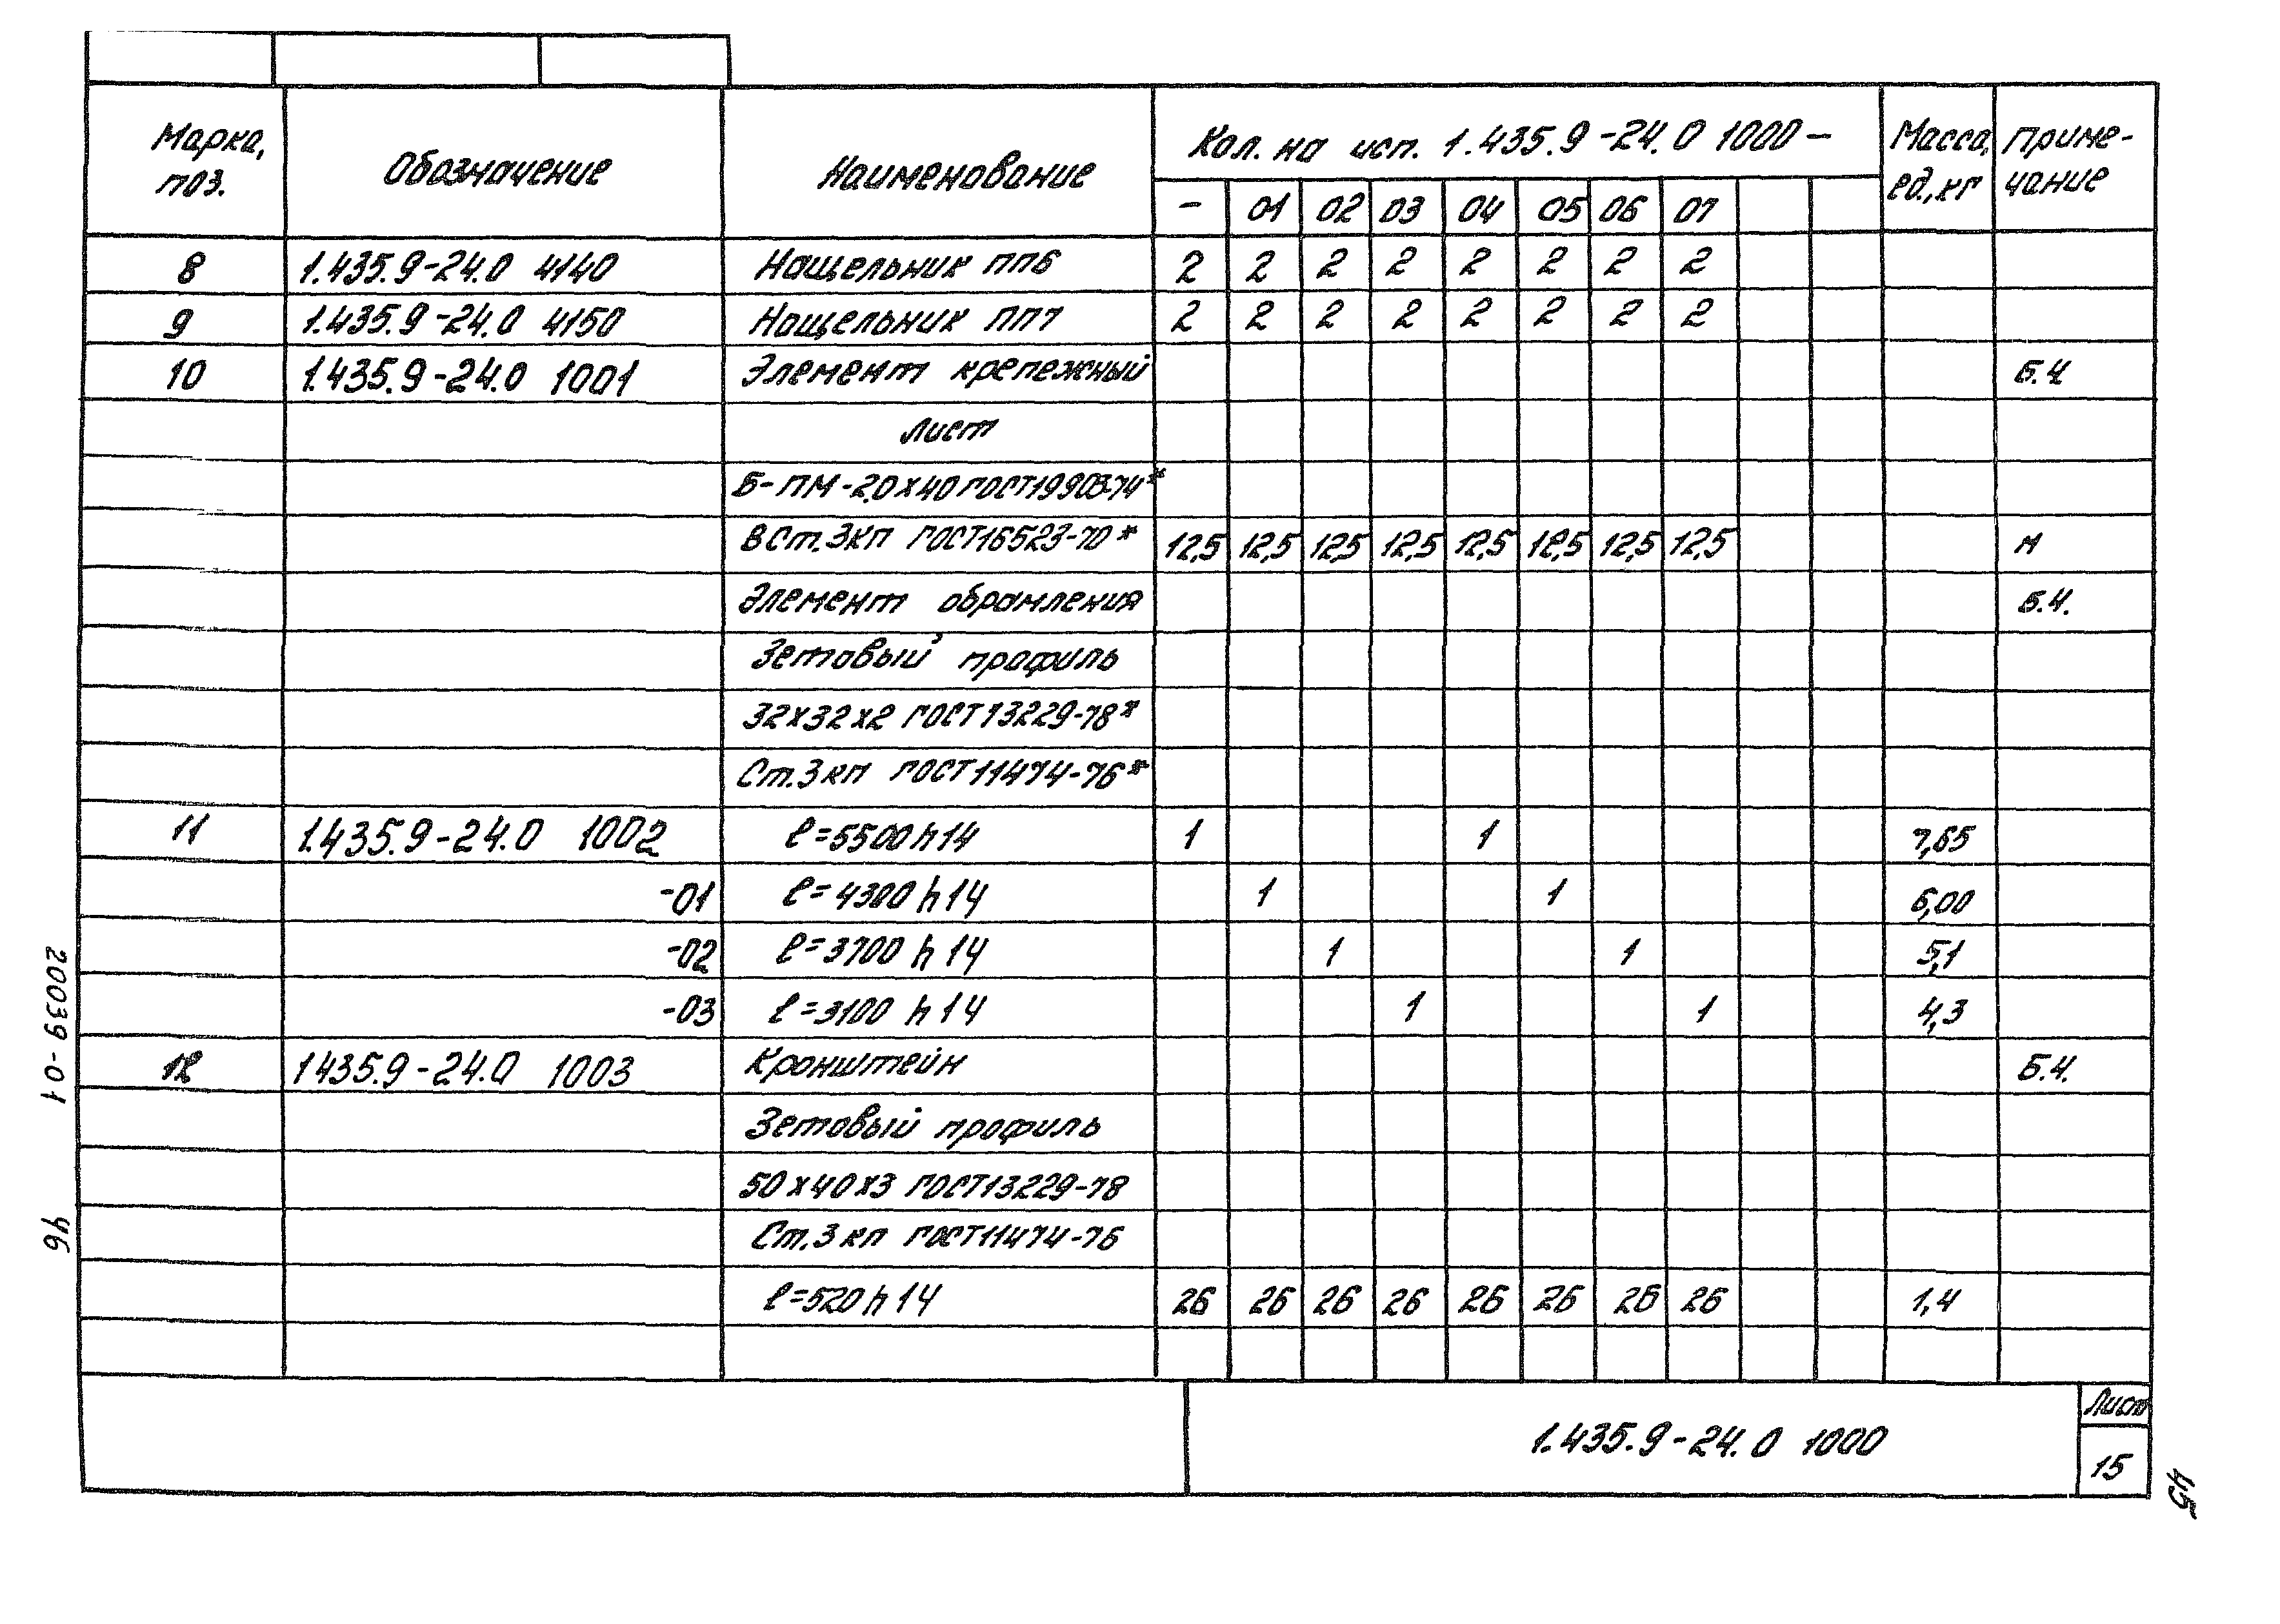 Марка, поз. Обозначение Наименование Кол. на исп. 1.435.9-24.0 1000- Масса, ед., кг Приме-чание
- 01 02 03 04 05 06 07
8 1.435.9-24.0 4140 Нащельник ПП6 2 2 2 2 2 2 2 2
9 1.435.9-24.0 4150 Нащельник ПП7 2 2 2 2 2 2 2 2
10 1.435.9-24.0 1001 Элемент крепежный Б.Ч
Лист
Б-ПМ-2,0х40 ГОСТ19903-74*
ВСт.3кп ГОСТ16523-70* 12,5 12,5 12,5 12,5 12,5 12,5 12,5 12,5 м
Элемент обрамления Б.Ч.
Зетовый профиль
32х32х2 ГОСТ13229-78*
Ст.3кп ГОСТ11474-76*
11 1.435.9-24.0 1002 ℓ=5500h14 1 1 7,65
-01 ℓ=4300h14 1 1 6,00
-02 ℓ=3700h14 1 1 5,1
-03 ℓ=3100h14 1 1 4,3
12 1435.9-24.0 1003 Кронштейн Б.Ч.
Зетовый профиль
50х40х3 ГОСТ13229-78
Ст.3кп ГОСТ11474-76
ℓ=520h14 26 26 26 26 26 26 26 26 1,4
1.435.9-24.0 1000
Лист
15
20039-01 46
45